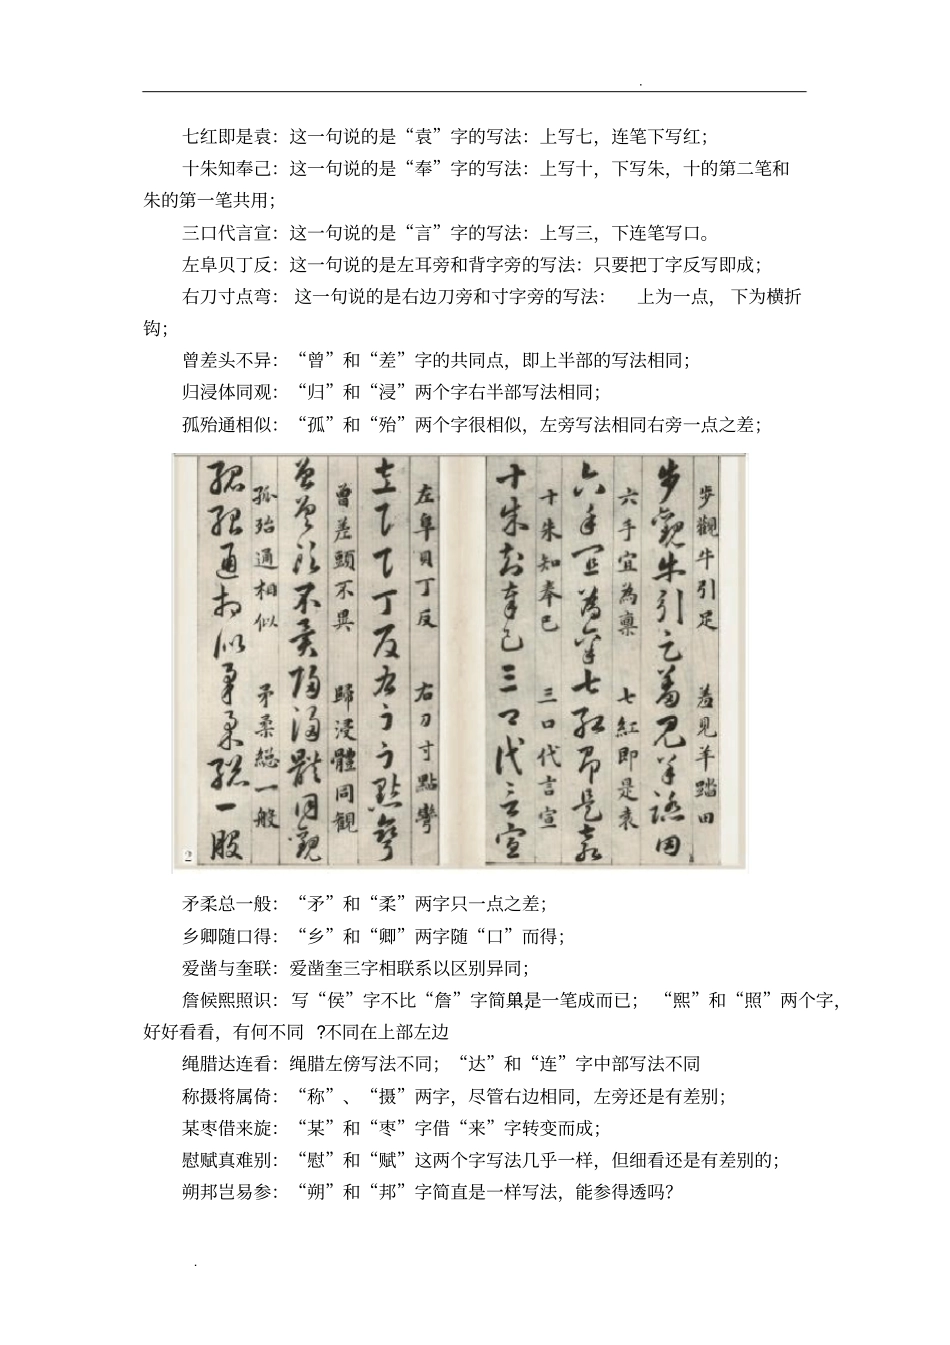 七红即是袁：这一句说的是“袁”字的写法：上写七，连笔下写红；
十朱知奉己：这一句说的是“奉”字的写法：上写十，下写朱，十的第二笔和
朱的第一笔共用；
三口代言宣：这一句说的是“言”字的写法：上写三，下连笔写口。
左阜贝丁反：这一句说的是左耳旁和背字旁的写法：只要把丁字反写即成；
右刀寸点弯： 这一句说的是右边刀旁和寸字旁的写法： 上为一点， 下为横折
钩；
曾差头不异：“曾”和“差”字的共同点，即上半部的写法相同；
归浸体同观：“归”和“浸”两个字右半部写法相同；
孤殆通相似：“孤”和“殆”两个字很相似，左旁写法相同右旁一点之差；
步觀牛引足 羞見羊踏田
六手宜為禀 七紅即是袁
十朱知奉已 三口代言宣
左阜貝丁反 右刀寸點彎
曾差頭不異 歸浸體同観
孤殆通相似 矛柔総一般
2
矛柔总一般：“矛”和“柔”两字只一点之差；
乡卿随口得：“乡”和“卿”两字随“口”而得；
爱凿与奎联：爱凿奎三字相联系以区别异同；
詹候熙照识： 写“侯”字不比“詹”字简单,是一笔成而已； “熙”和“照”两个字，
好好看看，有何不同 ?不同在上部左边
绳腊达连看：绳腊左傍写法不同；“达”和“连”字中部写法不同
称摄将属倚：“称”、“摄”两字，尽管右边相同，左旁还是有差别；
某枣借来旋：“某”和“枣”字借“来”字转变而成；
慰赋真难别：“慰”和“赋”这两个字写法几乎一样，但细看还是有差别的；
朔邦岂易参：“朔”和“邦”字简直是一样写法，能参得透吗？